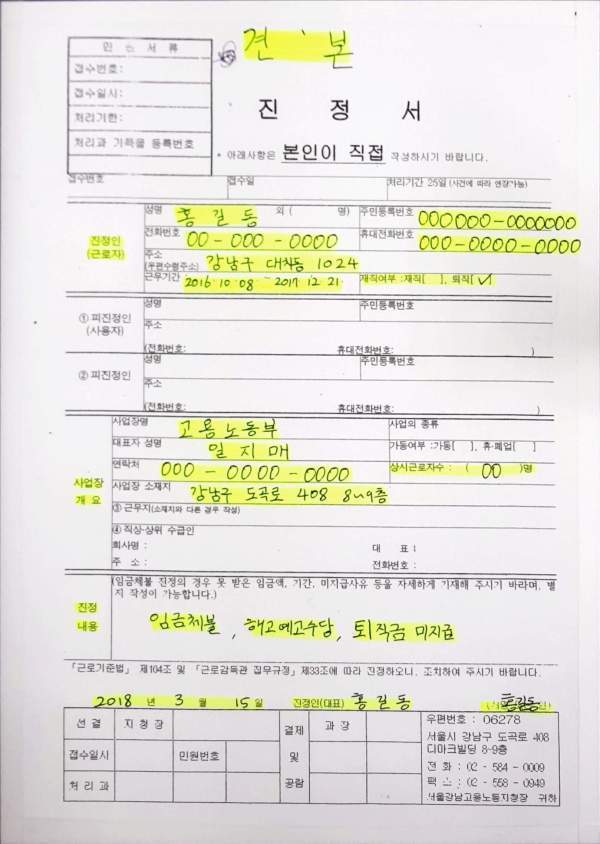 견 본
민원서류
접수번호:
접수일시:
처리기한:
처리과 기록물 등록번호
진 정 서
* 아래사항은 본인이 직접 작성하시기 바랍니다.
접수번호 접수일 처리기간 25일 (사건에 따라 연장가능)
진정인
(근로자)
성명 홍길동 외 ( 명) 주민등록번호 000000-0000000
전화번호 00-000-0000 휴대전화번호 000-0000-0000
주소
(우편수령주소) 강남구 대치동 1024
근무기간 2016.10.08 ~ 2017.12.21. 재직여부 :재직[ ], 퇴직[✓
① 피진정인
(사용자)
성명 주민등록번호
주소
(전화번호: 휴대전화번호: )
② 피진정인
성명 주민등록번호
주소
(전화번호: 휴대전화번호: )
사업장
개 요
사업장명 고용노동부 사업의 종류
대표자 성명 일지매 가동여부 :가동[ ], 휴·폐업[ ]
연락처 000-0000-0000 상시근로자수 : ( 00 )명
사업장 소재지 강남구 도곡로 408 8~9층
③ 근무지(소재지와 다른 경우 작성)
④ 직상·상위 수급인
회사명 : 대 표 :
주 소 : 전화번호 :
진정
내용
(임금체불 진정의 경우 못 받은 임금액, 기간, 미지급사유 등을 자세하게 기재해 주시기 바라며, 별지 작성이 가능합니다.)
임금체불, 해고예고수당, 퇴직금 미지급
「근로기준법」 제104조 및 「근로감독관 집무규정」제33조에 따라 진정하오니, 조치하여 주시기 바랍니다.
2018 년 3 월 15 일 진정인(대표) 홍길동 홍길동
선 결 지 청 장 결재 및 공람 과 장
접수일시 민원번호
처 리 과
우편번호 : 06278
서울시 강남구 도곡로 408
디마크빌딩 8-9층
전 화 : 02 - 584 - 0009
팩 스 : 02 - 558 - 0949
서울강남고용노동지청장 귀하